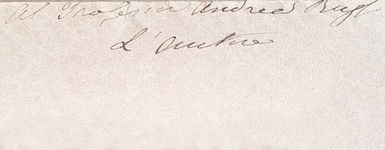 Al Professor Andrea
L'autore